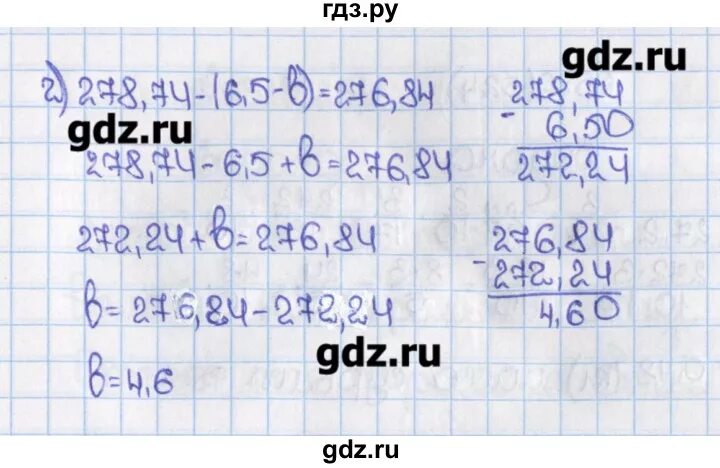 гдз.ру
gdz.ru
г) 278,74-(6,5-в)=276,84
gdz.ru
278,74-6,5+в=276,84
272,24+в=276,84
в=276,84-272,24
в=4,6
278,74
- 6,50
272,24
276,84
- 272,24
4,60
gdz.ru
gdz.ru